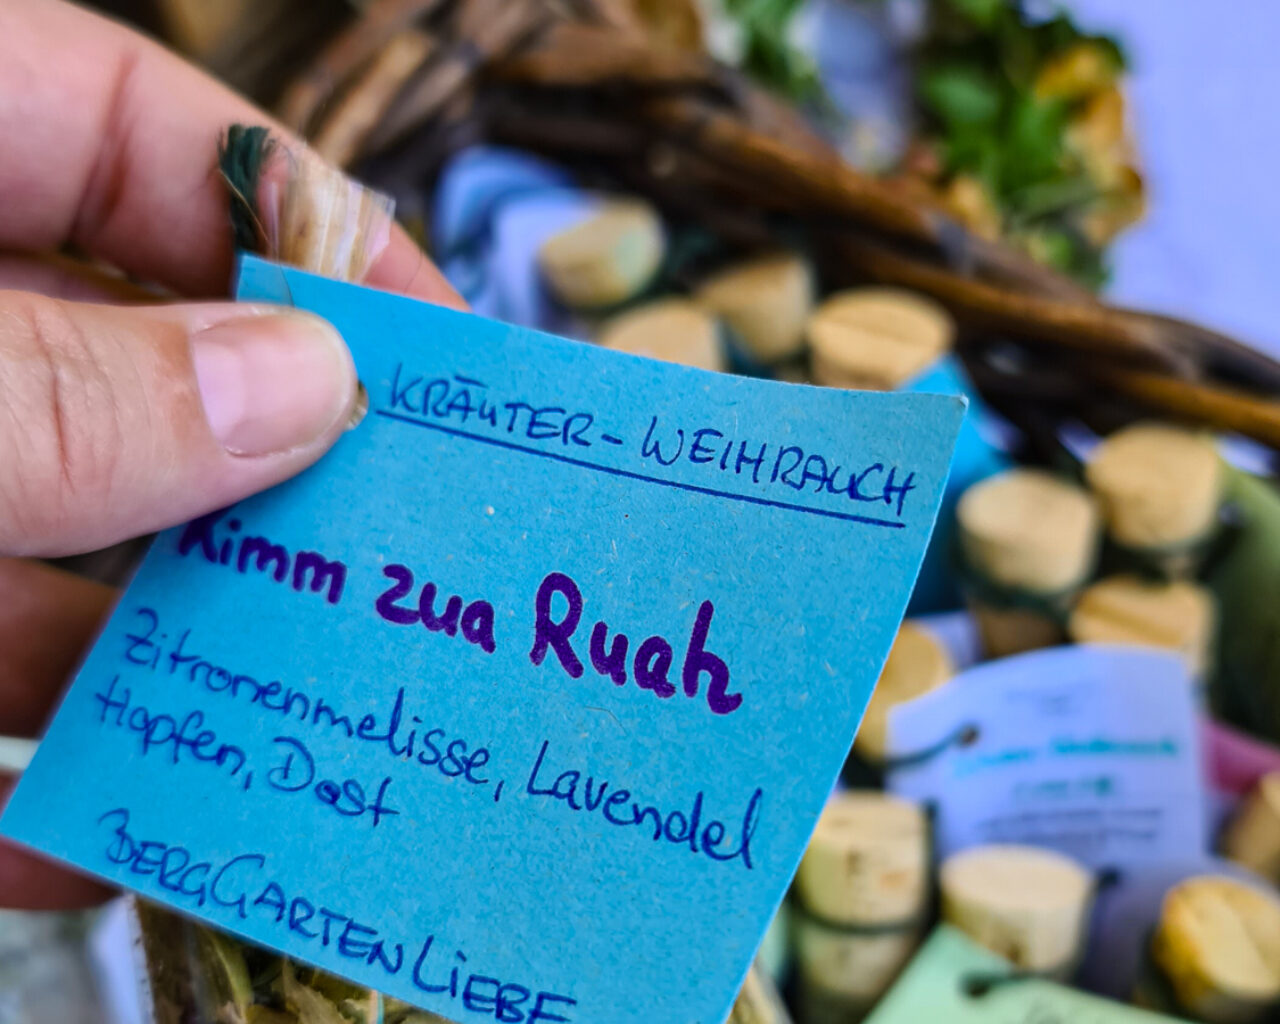 KRÄUTER-WEIHRAUCH
Kimm zua Ruah
Zitronenmelisse, Lavendel
Hopfen, Dost
BERGGARTENLIEBE